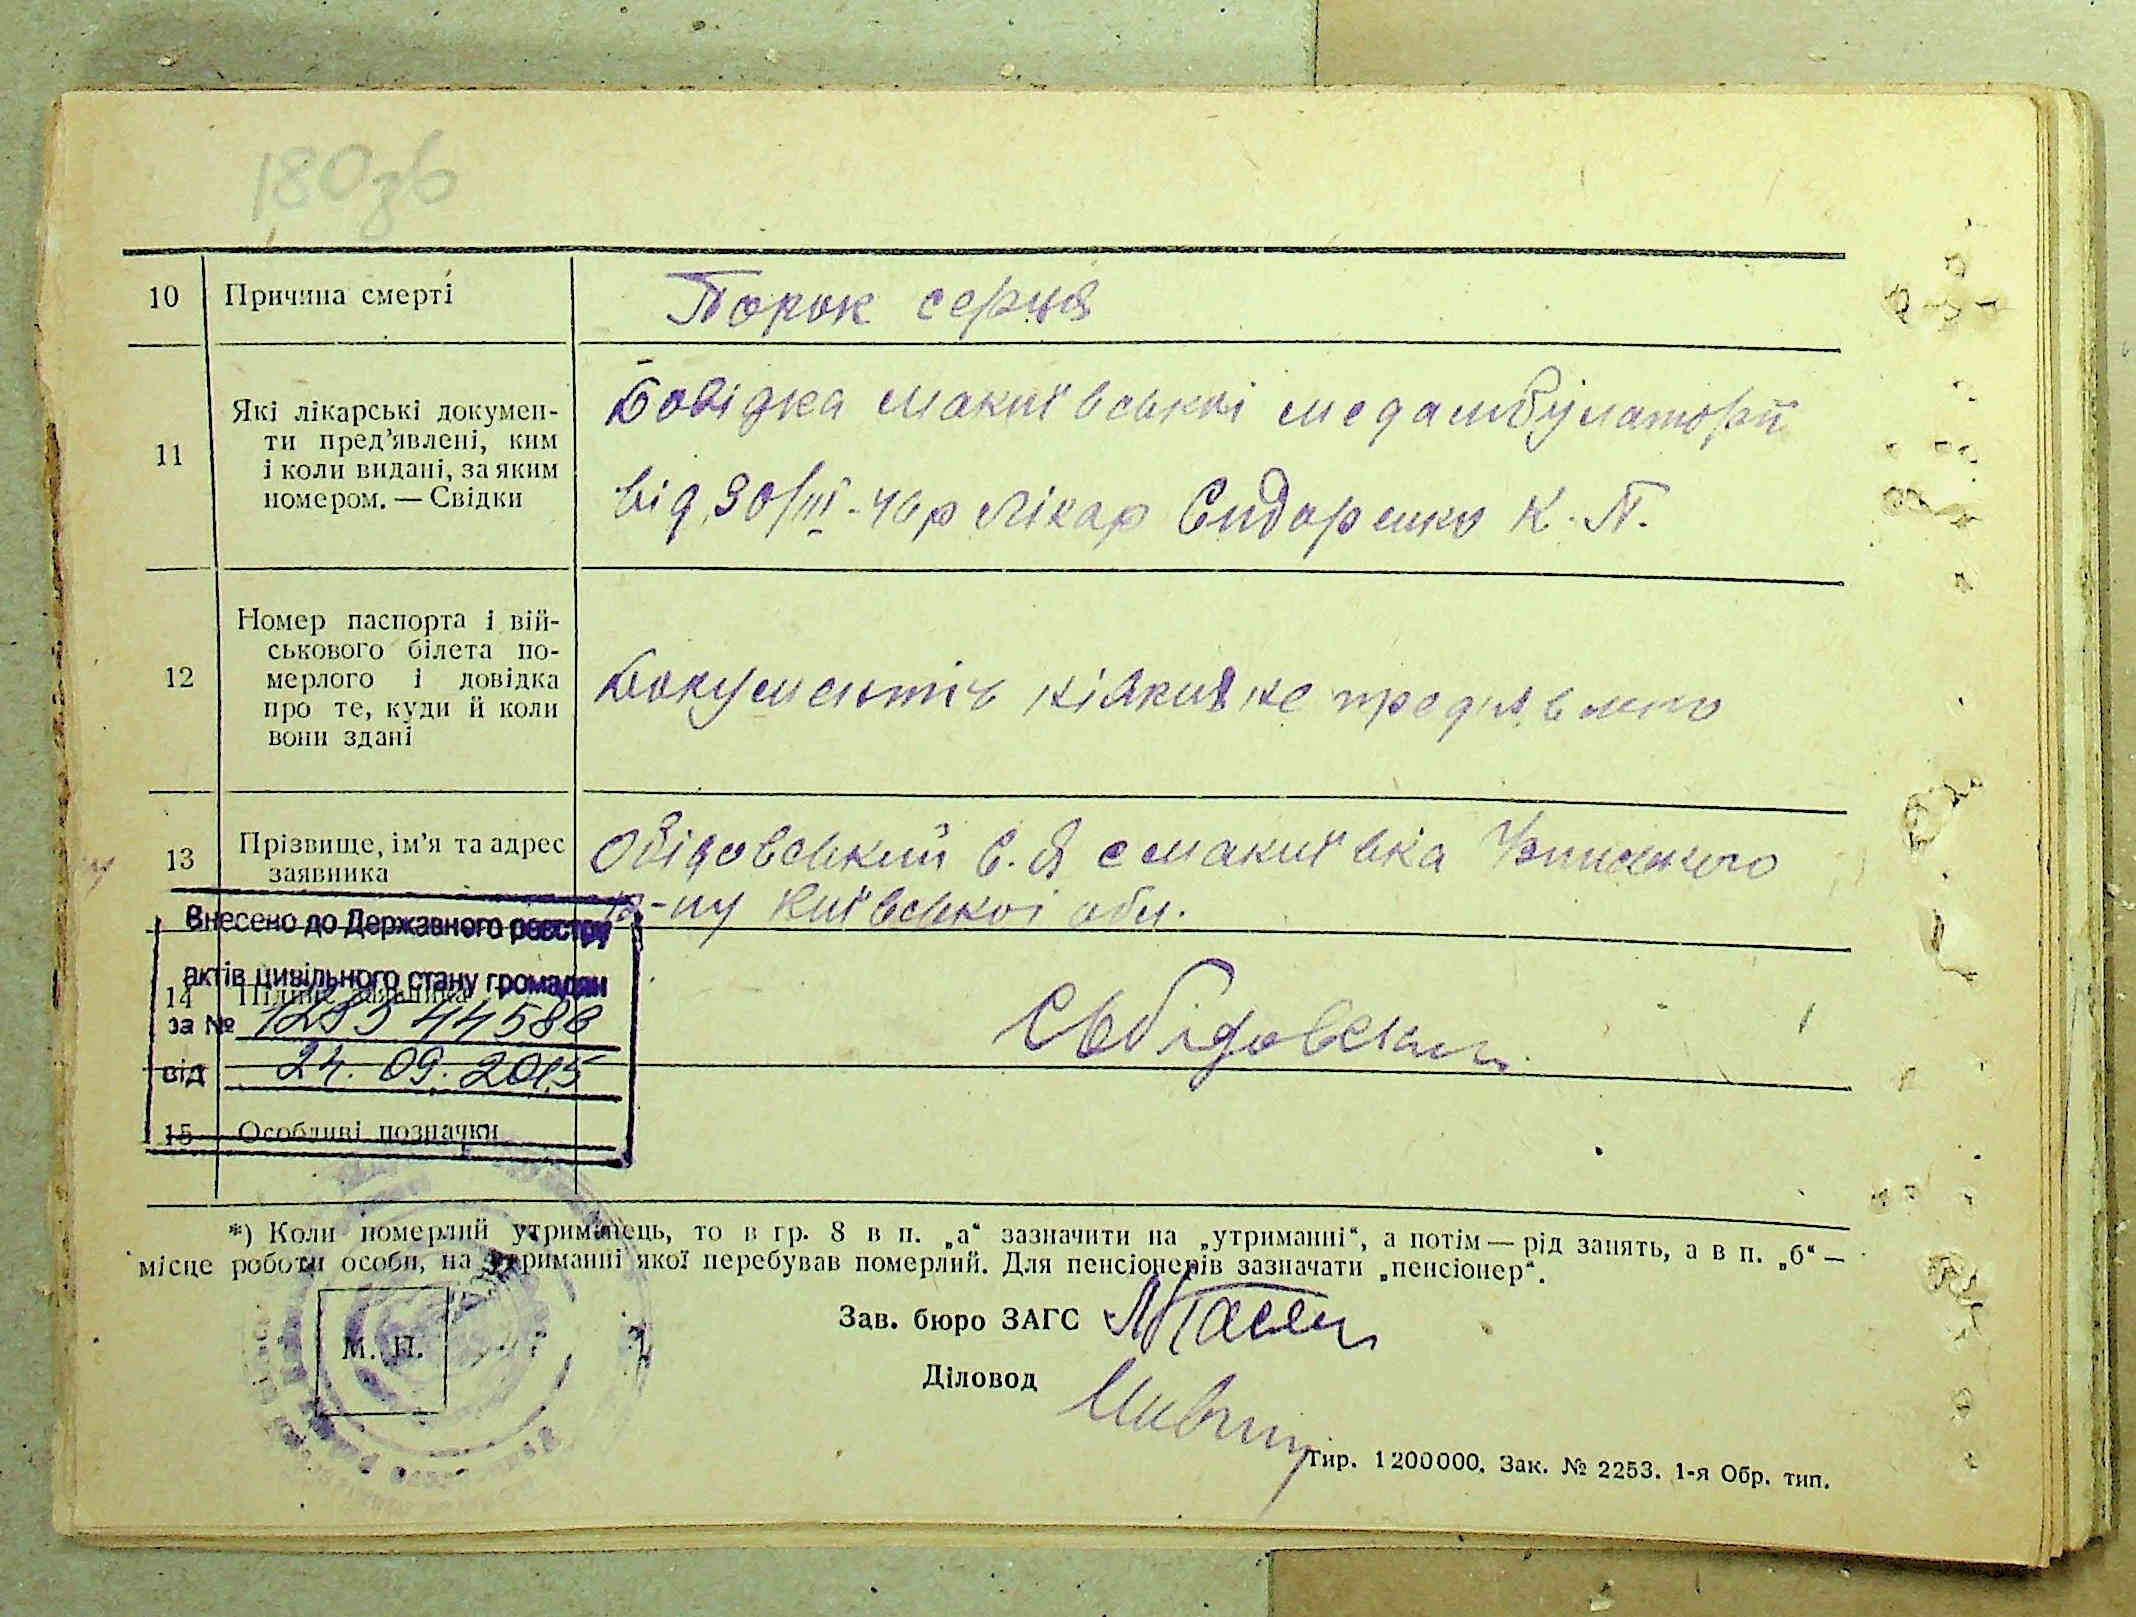 180зв
10 Причина смерті Порок серця
11 Які лікарські докумен-
ти пред’явлені, ким
і коли видані, за яким
номером. — Свідки
Довідка макиївської медамбулаторії
від 30/III-46р лікар Сидоренко К. П.
12 Номер паспорта і вій-
ськового білета по-
мерлого і довідка
про те, куди й коли
вони здані
Документів ніяких не пред'явлено
13 Прізвище, ім’я та адрес
заявника
Обідовський Є. Я с макиївка
р-ну Київської обл.
Внесено до Державного реєстру
актів цивільного стану громадян
14 Підпис заявника
за №
від 24.09.2015
15 Особливі позначки
*) Коли померлий утриманець, то в гр. 8 в п. „а“ зазначити на „утриманні“, а потім — рід занять, а в п. „б“ —
місце роботи особи, на утриманні якої перебував померлий. Для пенсіонерів зазначати „пенсіонер“.
М. П.
Зав. бюро ЗАГС
Діловод
Тир. 1200000. Зак. № 2253. 1-я Обр. тип.